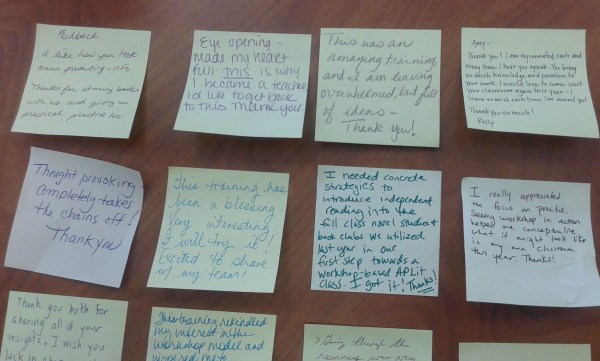 Feedback
I like how you took
turns presenting info.
Thanks for sharing books
with us and giving us
practical practice too.
Eye opening -
made my heart
full. This is why
I became a teacher,
id like to get back
to this. Thank you!
This was an
amazing training,
and I am leaving
overwhelmed, but full
of ideas -
Thank you!
Amy -
Thank you! I am rejuvenated each and
every time I hear you speak. You bring
so much knowledge and passion to
your work. I would love to come visit
your classroom again this year - I
learn so much each time I'm around you!
Thank you so much!
Kelly
Thought provoking -
completely takes
the chains off!
Thank you
This training has
been a blessing.
Very interesting.
I will try it!
Excited to share
w/ my team!
I needed concrete
strategies to
introduce independent
reading into the
full class novel studies &
book clubs we utilized
last year in our
first step towards a
workshop-based AP Lit
class. I got it! Thanks!
I really appreciated
the focus on practice.
Seeing workshop in action
helped me conceptualize
what it might look like
in my own classroom
this year. Thanks!
Thank you both for
sharing all of your
insights. I wish you
This training rekindled
my interest in the
workshop model and
inspired me to
Going through the